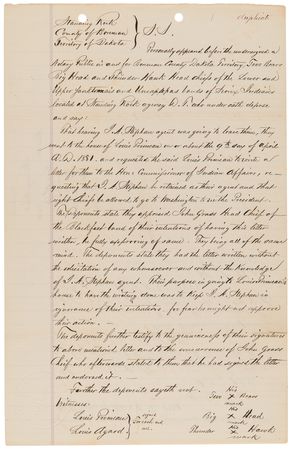 Duplicate
Standing Rock
County of Boreman } S.S.
Territory of Dakota
Personally appeared before the undersigned a
Notary Public in and for Boreman County Dakota Territory Two Bears
Big Head and Thunder Hawk Head Chiefs of the Lower and
Upper Yanktonais and Uncapapas bands of Sioux Indians
located at Standing Rock agency D.T. who under oath depose
and say:
That hearing J.A. Stephan agent was going to leave them, they
went to the house of Louis Primeau on or about the 9th day of April
A.D. 1881. and requested the said Louis Primeau to write a
letter for them to the Hon. Commissioner of Indian Affairs, re-
questing that J.A. Stephan be retained as their agent and that
eight Chiefs be allowed to go to Washington to see the President.
The deponents state they apprised John Grass Head Chief of
the Blackfeet band of their intentions of having this letter
written, he fully approving of same. They being all of the same
mind. The deponents state they had the letter written without
the solicitation of any whomsoever and without the knowledge
of J.A. Stephan agent. Their purpose in going to Louis Primeau's
house to have the writing done was to keep J.A. Stephan in
ignorance of their intentions for fear he might not approve
their action. —
The deponents further testify to the genuineness of their signatures
to above mentioned letter and to the concurrence of John Grass
Chief who afterwards stated to them that he had signed the letter
and endorsed it. —
Further the deponents sayeth not.
Witnesses.
his
Two x Bears
mark
Louis Primeau
his
Big x Head
mark
Louis Agard
his
Thunder x Hawk
mark